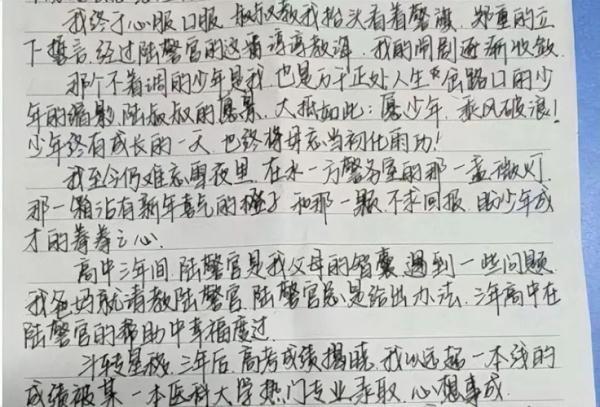 我终于心服口服,叔叔教我抬头看着警旗,郑重的立
下誓言,经过陆警官的这番谆谆教诲,我的闹剧逐渐收敛.
那个不着调的少年是我,也是万千正处人生岔路口的少
年的缩影,陆叔叔的愿景,大抵如此:愿少年,乘风破浪!
少年终有成长的一天,也终将毋忘当初化雨功!
我至今仍难忘雪夜里,在水一方警务室的那一盏微灯,
那一箱沾有新年喜气的橙子,和那一颗不求回报,助少年成
才的拳拳之心.
高中三年间,陆警官是我父母的智囊,遇到一些问题,
我爸妈就请教陆警官,陆警官总是给出办法,三年高中在
陆警官的帮助中幸福度过.
斗转星移,三年后,高考成绩揭晓,我以远超一本线的
成绩被某一本医科大学热门专业录取,心想事成.